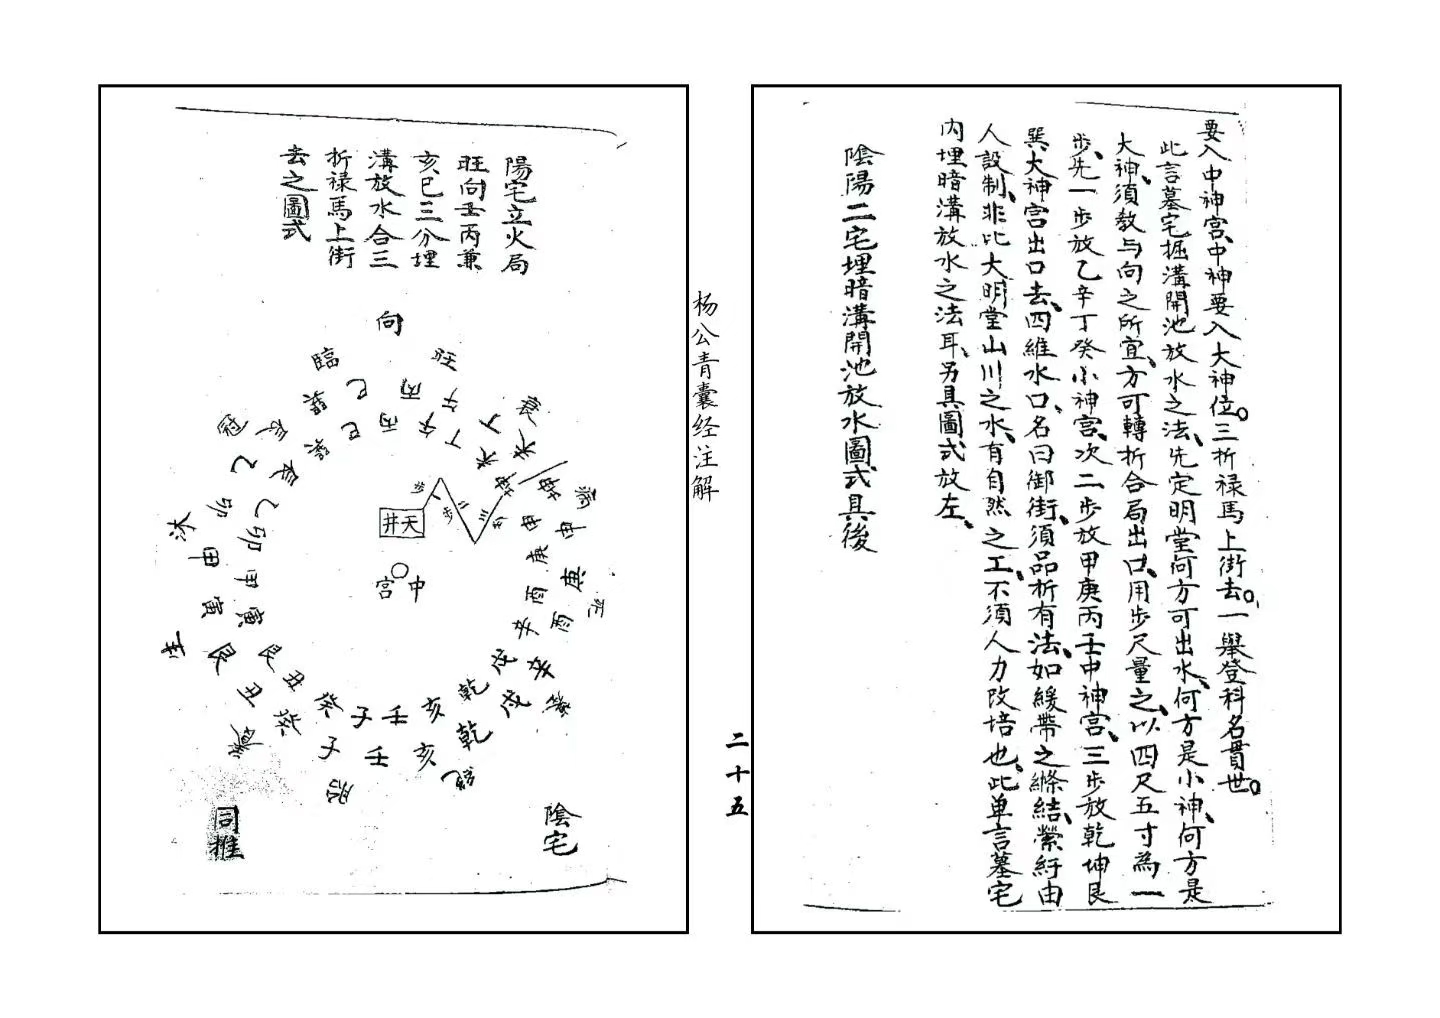 要入中神宮、中神要入大神位。三折祿馬上街去。一舉登科名貫世。
此言墓宅掘溝開池放水之法、先定明堂何方可出水、何方是小神、何方是
大神、須教与向之所宜、方可轉折合局出口、用步尺量之、以四尺五寸為一
步、先一步放乙辛丁癸小神宮、次二步放甲庚丙壬中神宮、三步放乾坤艮
巽、大神宮出口去、四維水口、名曰御街、須品折有法、如緩帶之縧結、縈紆由
人設制、非比大明堂山川之水、有自然之工、不須人力改培也、此单言墓宅
内埋暗溝放水之法耳、另具圖式放左、
陰陽二宅埋暗溝開池放水圖式具後
杨公青囊经注解
二十五
陽宅立火局
旺向壬丙兼
亥巳三分埋
溝放水合三
折祿馬上街
去之圖式
向
臨
旺
巽巳丙午丁未坤申庚酉辛戌乾亥壬子癸丑艮寅甲卯乙辰
巽巳丙午丁未坤申庚酉辛戌乾亥壬子癸丑艮寅甲卯乙辰
衰
病
死
墓
絕
胎
養
生
沐
冠
一步
二步
三步
天井
中宮
陰宅
同推